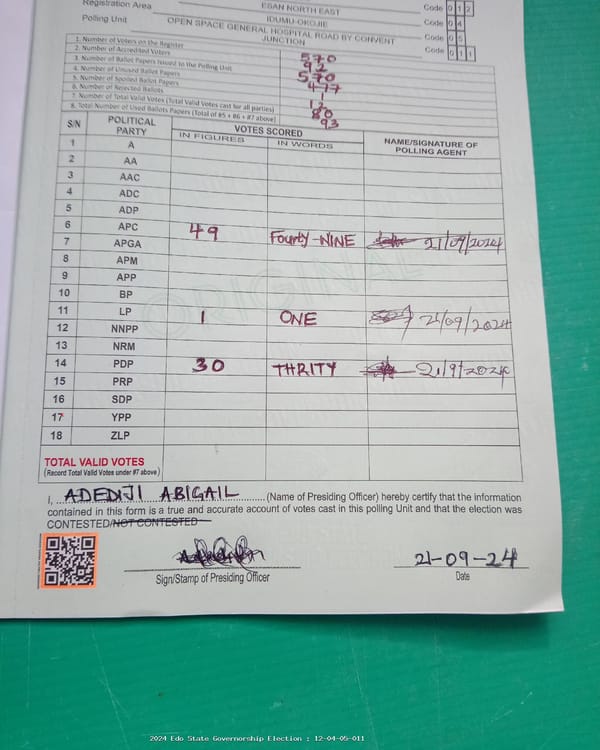 Registration Area ESAN NORTH EAST Code 0 1 2
IDUMU-OKOJIE Code 0 4
Polling Unit OPEN SPACE GENERAL HOSPITAL ROAD BY CONVENT JUNCTION Code 0 5
Code 0 1 1
1. Number of Voters on the Register 570
2. Number of Accredited Voters 92
3. Number of Ballot Papers Issued to the Polling Unit 570
4. Number of Unused Ballot Papers 477
5. Number of Spoiled Ballot Papers
6. Number of Rejected Ballots
7. Number of Total Valid Votes (Total Valid Votes cast for all parties) 80
8. Total Number of Used Ballots Papers (Total of #5 + #6 + #7 above) 93
S/N POLITICAL PARTY VOTES SCORED NAME/SIGNATURE OF POLLING AGENT
IN FIGURES IN WORDS
1 A
2 AA
3 AAC
4 ADC
5 ADP
6 APC 49 Fourty-NINE 21/09/2024
7 APGA
8 APM
9 APP
10 BP
ORIGINAL
11 LP 1 ONE 21/09/2024
12 NNPP
13 NRM
14 PDP 30 THRITY 21/9/2024
15 PRP
16 SDP
17 YPP
18 ZLP
TOTAL VALID VOTES
(Record Total Valid Votes under #7 above)
I, ADEDIJI ABIGAIL (Name of Presiding Officer) hereby certify that the information
contained in this form is a true and accurate account of votes cast in this polling Unit and that the election was
CONTESTED/NOT CONTESTED
21-09-24
Sign/Stamp of Presiding Officer Date
2024 Edo State Governorship Election : 12-04-05-011